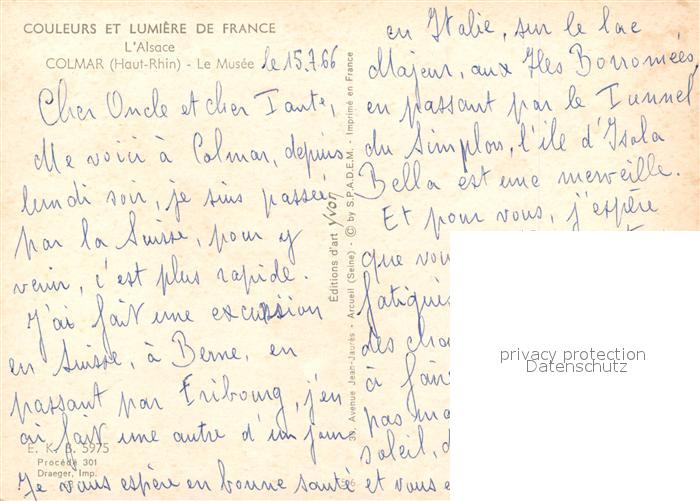 COULEURS ET LUMIÈRE DE FRANCE
L'Alsace
COLMAR (Haut-Rhin) - Le Musée
le 15.7.66
Cher Oncle et cher Tante,
Me voici à Colmar, depuis
lundi soir, je suis passée
par la Suisse, pour y
venir, c'est plus rapide.
J'ai fait une excursion
en Suisse, à Berne, en
passant par Fribourg, j'en
ai fait une autre d'un jour
E. K. B. 5975
Procédé 301
Draeger, Imp.
Je vous espère en bonne santé
Editions d'art Yvon
39, Avenue Jean-Jaurès - Arcueil (Seine) - © by S.P.A.D.E.M. - Imprimé en France
en Italie, sur le lac
Majeur, aux Iles Borromées,
en passant par le Tunnel
du Simplon, l'ile d'Isola
Bella est une merveille.
Et pour vous, j'espère
que vou
fatigué
des cha
à fair
pas ma
soleil, d
et vous e
privacy protection
Datenschutz